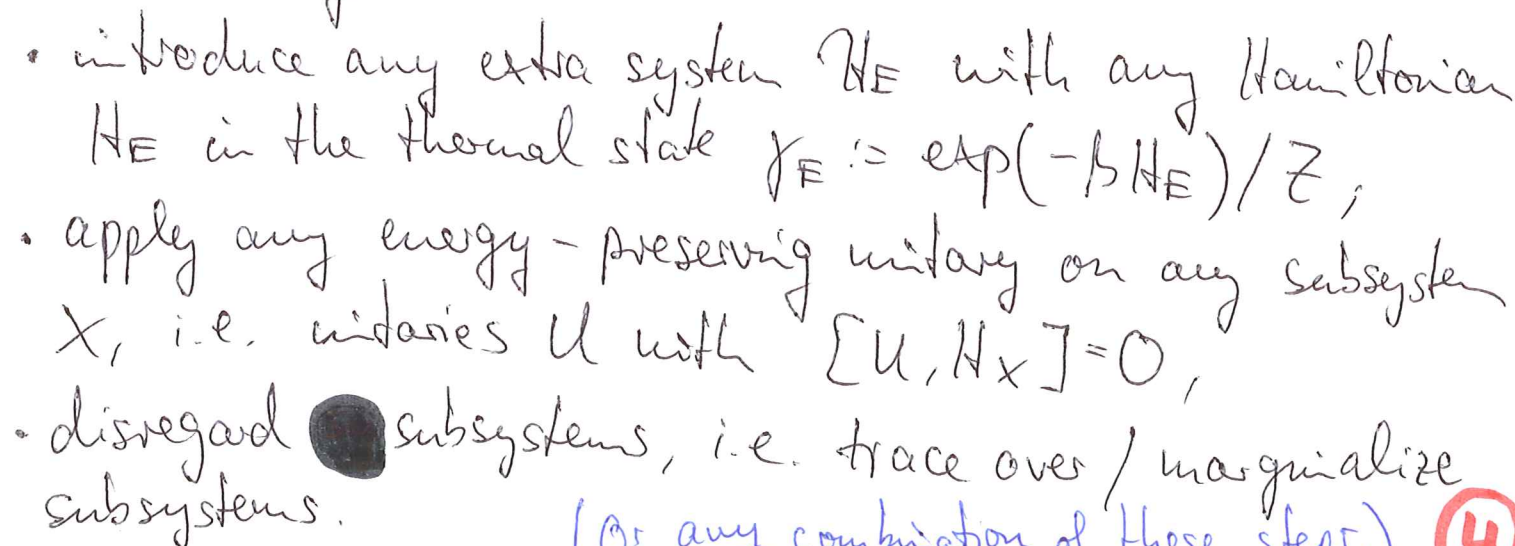 · introduce any extra system ℋ_E with any Hamiltonian
H_E in the thermal state γ_E := exp(-βH_E)/Z,
· apply any energy-preserving unitary on any subsystem
X, i.e. unitaries U with [U,H_X]=0,
· disregard subsystems, i.e. trace over / marginalize
subsystems.
(Or any combination of these steps) 4